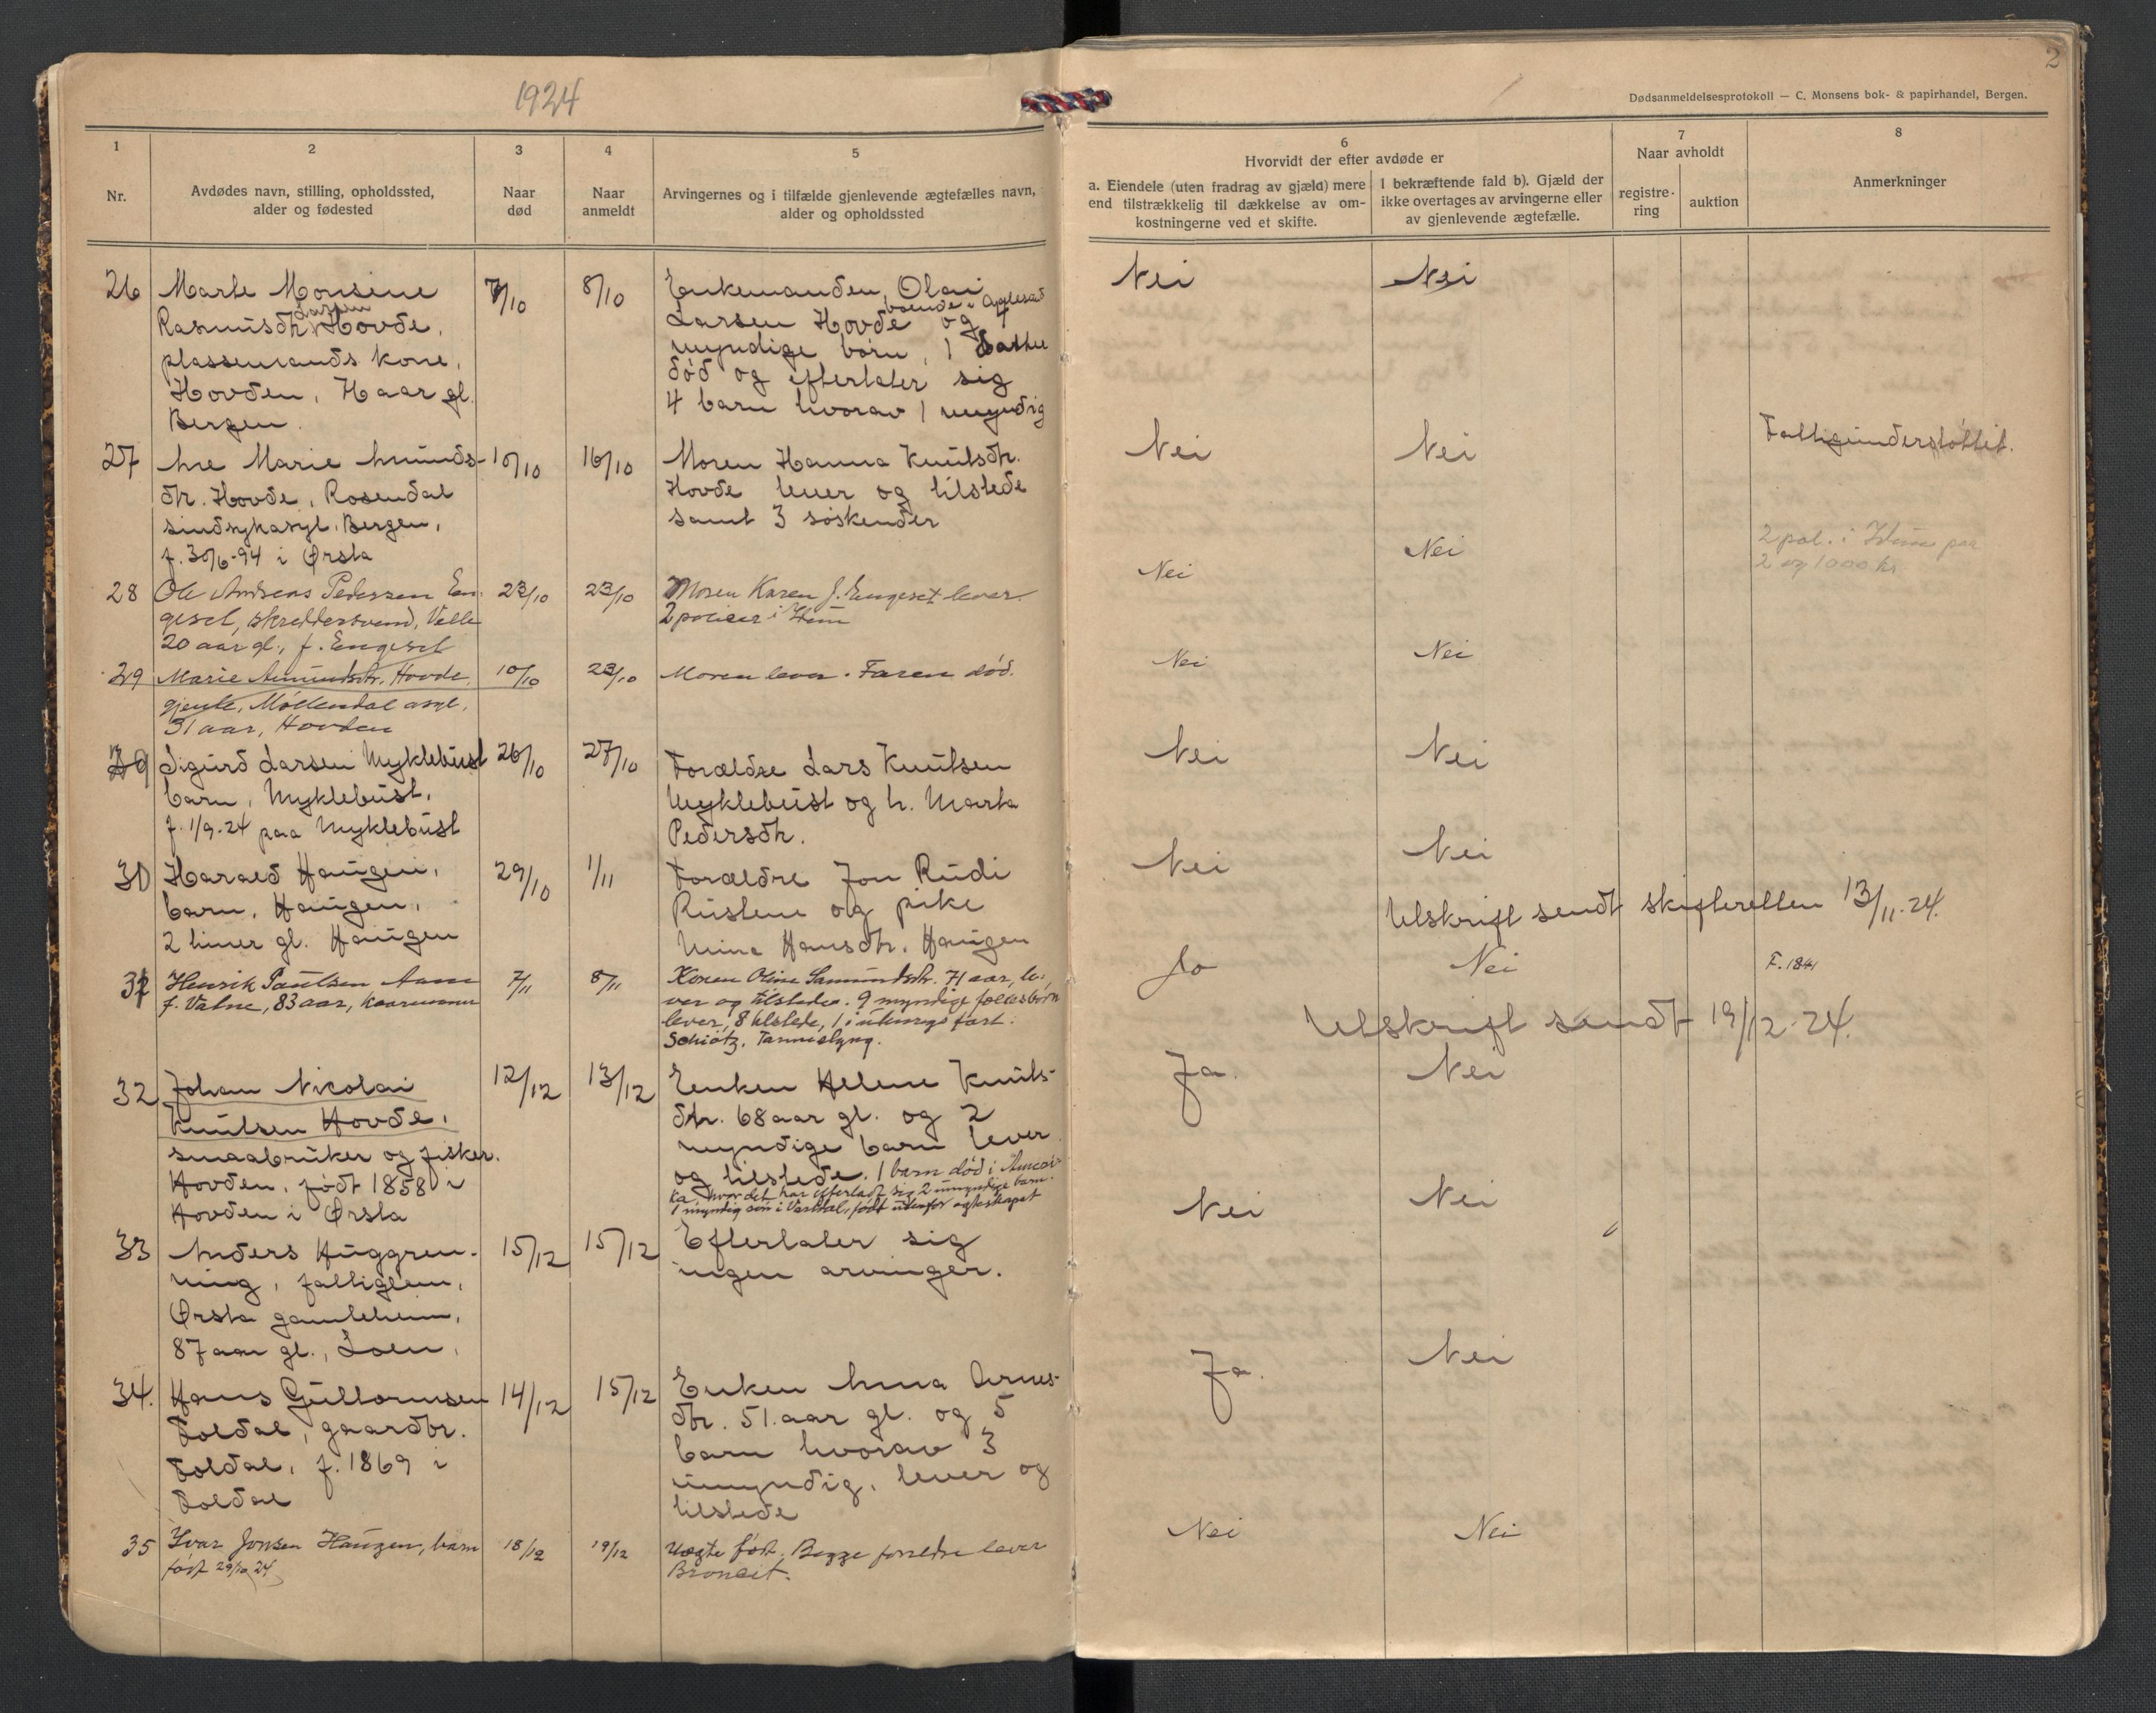 1924
2
Dødsanmeldelsesprotokoll — C. Monsens bok- & papirhandel, Bergen.
1
Nr.
2
Avdødes navn, stilling, opholdssted,
alder og fødested
3
Naar
død
4
Naar
anmeldt
5
Arvingernes og i tilfælde gjenlevende ægtefælles navn,
alder og opholdssted
6
Hvorvidt der efter avdøde er
a. Eiendele (uten fradrag av gjæld) mere
end tilstrækkelig til dækkelse av om-
kostningerne ved et skifte.
I bekræftende fald b). Gjæld der
ikke overtages av arvingerne eller
av gjenlevende ægtefælle.
7
Naar avholdt
registre-
ring
auktion
8
Anmerkninger
26
Marte Monsine
Larsen
Rasmusdtr. Hovde,
plassemands kone,
Hovden, Haar gl.
Bergen.
7/10
8/10
Enkemanden, Olai
boende i
Larsen Hovde og 4
myndige børn, 1 datter
død og efterlater sig
4 barn hvorav 1 umyndig
Nei
Nei
27
Ane Marie Amunds-
dtr. Hovde, Rosendal
sindsykasyl. Bergen,
f. 30/6-94 i Ørsta
10/10
16/10
Moren Hanna Knutsdtr.
Hovde lever og tilstede
samt 3 søskender
Nei
Nei
Fattigunderstøttet.
28
Ole Andreas Pedersen En-
geset, skreddersvend, Velle
20 aar gl., f. Engeset
23/10
23/10
Moren Karen J. Engeset lever.
2 policer i Idun
Nei
Nei
2 pol. i Idun paa
2 og 1000 kr.
29
Marie Amundsdtr. Hovde,
gjente, Møllendal asyl,
31 aar, Hovden
10/10
23/10
Moren lever. Faren død.
Nei
Nei
Sigurd Larsen Myklebust
barn, Myklebust,
f. 1/9-24 paa Myklebust
26/10
27/10
Forældre Lars Knutsen
Myklebust og h. Marta
Pedersdtr.
Nei
Nei
30
Harald Haugen,
barn, Haugen,
2 timer gl. Haugen
29/10
1/11
Forældre Jon Rudi
Rustene og pike
Mina Hansdtr. Haugen
Nei
Nei
Utskrift sendt skifteretten 13/11-24.
31
Henrik Paulsen Aam
f. Vatne, 83 aar, kaarmann
7/11
8/11
Konen Oline Samundsdtr. 71 aar, le-
ver og tilstede. 9 myndige fællesbørn
lever, 8 tilstede, 1 i utenrigs fart.
Jo
Nei
F. 1841
Utskrift sendt 19/12-24.
32
Johan Nicolai
Knutsen Hovde,
smaabruker og fisker.
Hovden, født 1858 i
Hovden i Ørsta
12/12
13/12
Enken Helene Knuts-
dtr. 68 aar gl. og 2
myndige barn lever
og tilstede. 1 barn død i Ameri-
ka hvor det har efterladt sig 2 umyndige barn.
1 myndig søn i Vartdal, født utenfor egteskapet
Ja.
Nei
33
Anders Huggren-
ning, fattiglem,
Ørsta gamleheim,
87 aar gl., Loen,
15/12
15/12
Efterlater sig
ingen arvinger.
Nei
Nei
34.
Hans Guttormsen
Foldal, gaardbr.
Foldal, f. 1869 i
Foldal
14/12
15/12
Enken Anna Arnes-
dtr. 51 aar gl. og 5
barn hvorav 3
umyndig, lever og
tilstede
Ja.
Nei
35
Ivar Jonsen Haugen, barn
født 29/10 24
18/12
19/12
Uegte født. Begge foreldre lever
Nei
Nei